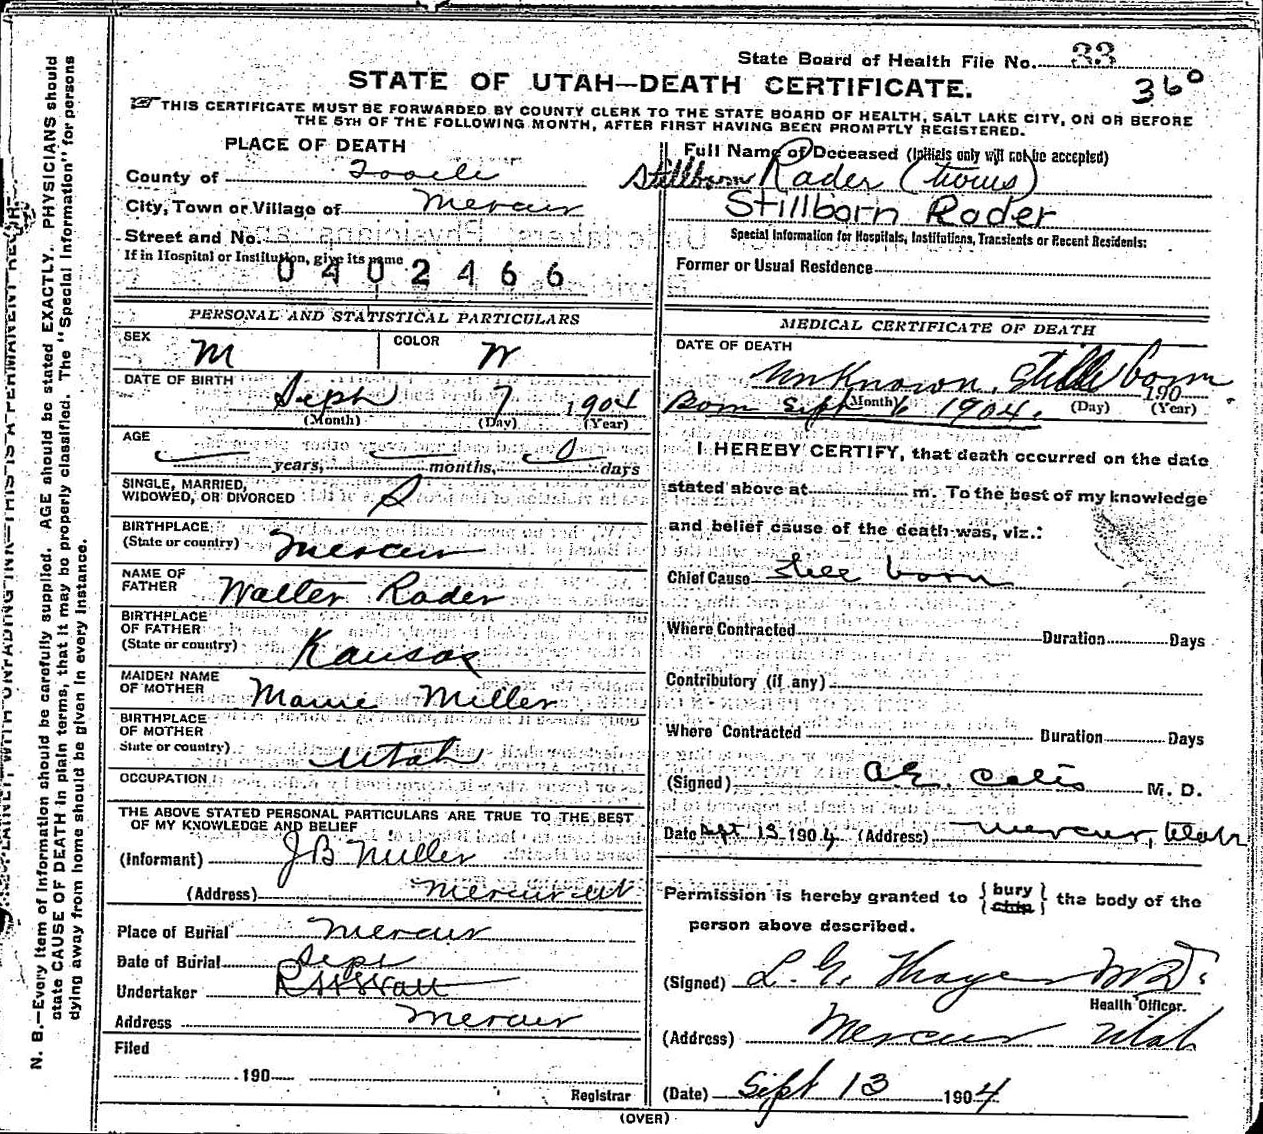 State Board of Health File No. 33
360
STATE OF UTAH—DEATH CERTIFICATE.
THIS CERTIFICATE MUST BE FORWARDED BY COUNTY CLERK TO THE STATE BOARD OF HEALTH, SALT LAKE CITY, ON OR BEFORE
THE 5TH OF THE FOLLOWING MONTH, AFTER FIRST HAVING BEEN PROMPTLY REGISTERED.
PLACE OF DEATH
County of Tooele
City, Town or Village of Mercur
Street and No.
If in Hospital or Institution, give its name
0402466
Full Name of Deceased (Initials only will not be accepted)
Stillborn Rader (twins)
Stillborn Rader
Special Information for Hospitals, Institutions, Transients or Recent Residents:
Former or Usual Residence
PERSONAL AND STATISTICAL PARTICULARS
SEX M COLOR W
DATE OF BIRTH
Sept 7 1904
(Month) (Day) (Year)
AGE
years, months, 0 days
SINGLE, MARRIED,
WIDOWED, OR DIVORCED S
BIRTHPLACE
(State or country) Mercur
NAME OF
FATHER Walter Rader
BIRTHPLACE
OF FATHER
(State or country) Kansas
MAIDEN NAME
OF MOTHER Mamie Miller
BIRTHPLACE
OF MOTHER
State or country) Utah
OCCUPATION
THE ABOVE STATED PERSONAL PARTICULARS ARE TRUE TO THE BEST
OF MY KNOWLEDGE AND BELIEF
(Informant) J B Miller
(Address) Mercur Ut
Place of Burial Mercur
Date of Burial Sept
Undertaker
Address Mercur
Filed
190
Registrar
MEDICAL CERTIFICATE OF DEATH
DATE OF DEATH
Unknown. Still born
190
Born Sept 6 1904.
(Month) (Day) (Year)
I HEREBY CERTIFY, that death occurred on the date
stated above at m. To the best of my knowledge
and belief cause of the death was, viz.:
Chief Cause still born
Where Contracted Duration Days
Contributory (if any)
Where Contracted Duration Days
(Signed) M. D.
Date Sept 13 1904 (Address) Mercur, Utah
Permission is hereby granted to { bury ship } the body of the
person above described.
(Signed) L. G. Thayer M.D.
Health Officer.
(Address) Mercur Utah
(Date) Sept 13 1904
(OVER)
N. B.—Every item of information should be carefully supplied. AGE should be stated EXACTLY. PHYSICIANS should
state CAUSE OF DEATH in plain terms, that it may be properly classified. The "Special Information" for persons
dying away from home should be given in every instance.